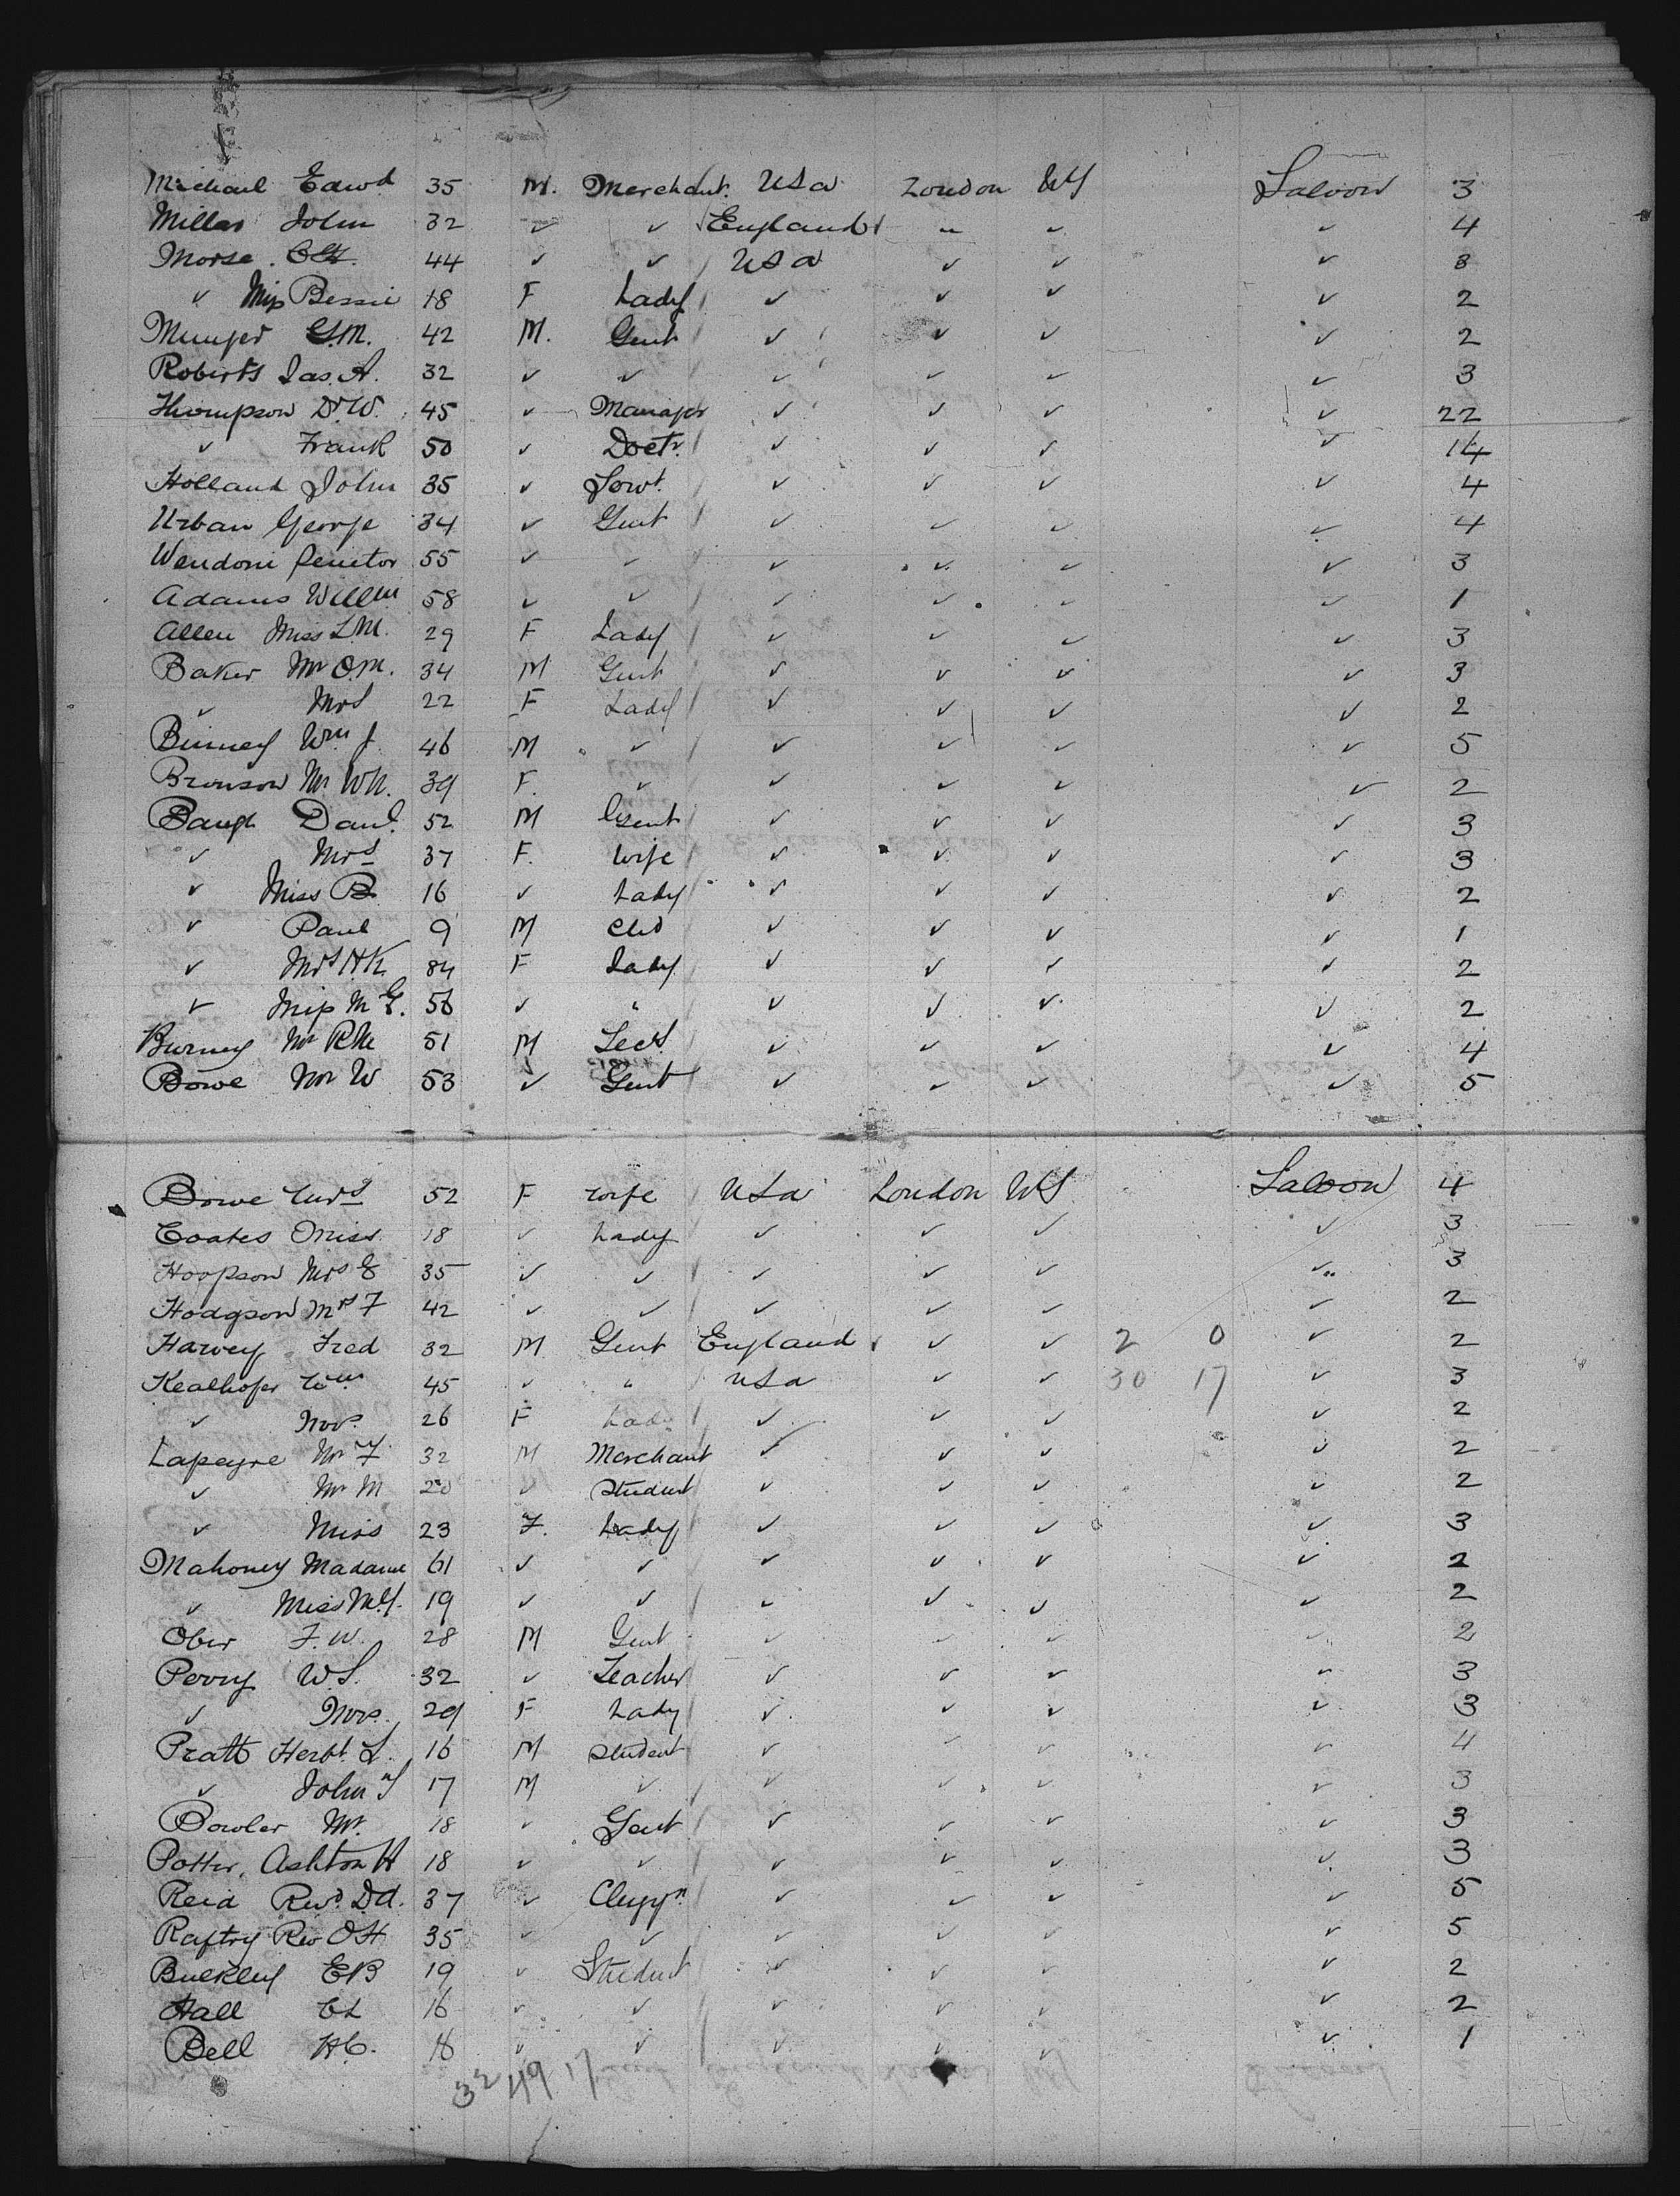 Michael Edwd 35 M. Merchant USa London NY Saloon 3
Millar John 32 ✓ ✓ England ✓ ✓ ✓ 4
Morse. 44 ✓ ✓ USa ✓ ✓ ✓ 3
✓ Miss Bessie 18 F Lady ✓ ✓ ✓ ✓ 2
Munger G.M. 42 M. Gent ✓ ✓ ✓ ✓ 2
Roberts Jas. A. 32 ✓ ✓ ✓ ✓ ✓ ✓ 3
Thompson Dr W. 45 ✓ Manager ✓ ✓ ✓ ✓ 22
✓ Frank 50 ✓ Doctr. ✓ ✓ ✓ ✓ 14
Holland John 35 ✓ Servt. ✓ ✓ ✓ ✓ 4
Urban George 34 ✓ Gent ✓ ✓ ✓ ✓ 4
55 ✓ ✓ ✓ ✓ ✓ ✓ 3
Adams Willm 58 ✓ ✓ ✓ ✓ ✓ ✓ 1
Allen Miss L.M. 29 F Lady ✓ ✓ ✓ ✓ 3
Baker Mr O.M. 34 M Gent ✓ ✓ ✓ ✓ 3
✓ Mrs 22 F Lady ✓ ✓ ✓ ✓ 2
Binney Wm J. 46 M ✓ ✓ ✓ ✓ ✓ 5
Bronson Mr W.N. 39 F. ✓ ✓ ✓ ✓ ✓ 2
Baugh Danl. 52 M Gent ✓ ✓ ✓ ✓ 3
✓ Mrs 37 F. Wife ✓ ✓ ✓ ✓ 3
✓ Miss B 16 ✓ Lady ✓ ✓ ✓ ✓ 2
✓ Paul 9 M Chd ✓ ✓ ✓ ✓ 1
✓ Mrs H.K. 84 F Lady ✓ ✓ ✓ ✓ 2
✓ Miss M G. 56 ✓ " ✓ ✓ ✓ ✓ 2
Burney Mr R.M 51 M Sect. ✓ ✓ ✓ ✓ 4
Bowe Mr W 53 ✓ Gent ✓ ✓ ✓ ✓ 5
Bowe Mrs 52 F Wife USa London NY Saloon 4
Coates Miss 18 ✓ Lady ✓ ✓ ✓ ✓ 3
Hoopson Mrs E 35 ✓ ✓ ✓ ✓ ✓ ✓ 3
Hodgson Mrs F 42 ✓ ✓ ✓ ✓ ✓ ✓ 2
Harvey Fred 32 M Gent England ✓ ✓ 2 0 ✓ 2
Kealhofer Wm 45 ✓ " USa ✓ ✓ 30 17 ✓ 3
✓ Mrs. 26 F Lady ✓ ✓ ✓ ✓ 2
Lapeyre Mr F. 32 M Merchant ✓ ✓ ✓ ✓ 2
✓ Mr M 20 ✓ Student ✓ ✓ ✓ ✓ 2
✓ Miss 23 F. Lady ✓ ✓ ✓ ✓ 3
Mahoney Madame 61 ✓ ✓ ✓ ✓ ✓ ✓ 2
✓ Miss M.Y. 19 ✓ ✓ ✓ ✓ ✓ ✓ 2
Ober F.W. 28 M Gent ✓ ✓ ✓ ✓ 2
Perry W.S. 32 ✓ Teacher ✓ ✓ ✓ ✓ 3
✓ Mrs. 29 F Lady ✓ ✓ ✓ ✓ 3
Pratt Herbt. L. 16 M Student ✓ ✓ ✓ ✓ 4
✓ John T 17 M ✓ ✓ ✓ ✓ ✓ 3
Bowler Mr. 18 ✓ Gent ✓ ✓ ✓ ✓ 3
Potter, Ashton H 18 ✓ ✓ ✓ ✓ ✓ ✓ 3
Reid Revd. D.A. 37 ✓ Clergyn ✓ ✓ ✓ ✓ 5
Raftry Rev O H 35 ✓ ✓ ✓ ✓ ✓ ✓ 5
Bulkley E B 19 ✓ Student ✓ ✓ ✓ ✓ 2
Hall C L 16 ✓ ✓ ✓ ✓ ✓ ✓ 2
Bell H C. 18 ✓ ✓ ✓ ✓ ✓ ✓ 1
32 49 17